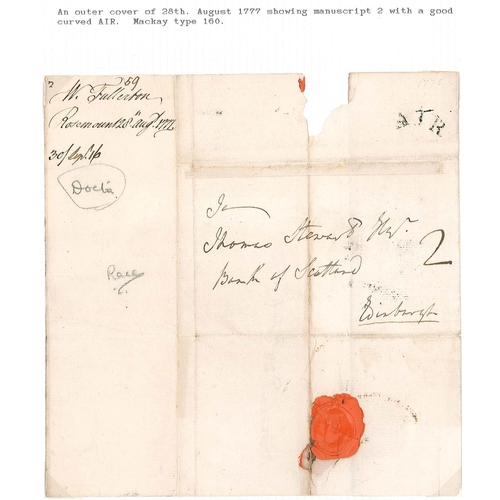 An outer cover of 28th. August 1777 showing manuscript 2 with a good
curved AIR. Mackay type 160.
59
W. Fullerton
Rosemount 28th augt. 1777
30/ Sept. 16
Docta
AIR
To
Thomas Stewart Esqr.
Bank of Scotland
2
Edinburgh